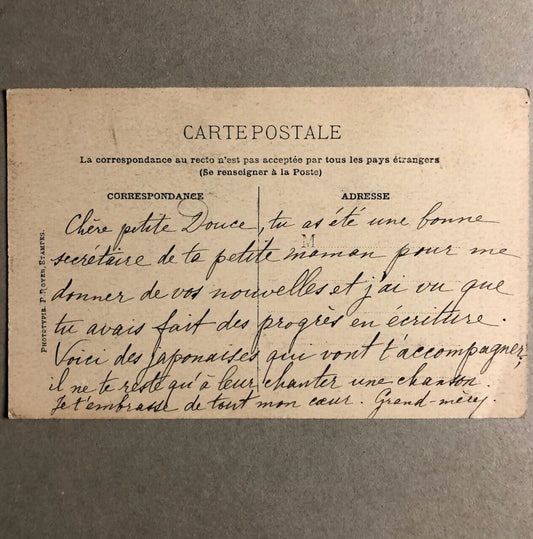 CARTE POSTALE
La correspondance au recto n'est pas acceptée par tous les pays étrangers
(Se renseigner à la Poste)
CORRESPONDANCE
ADRESSE
M
PHOTOTYPIE P. ROYER, ÉTAMPES.
Chère petite Douce, tu as été une bonne
secrétaire de ta petite maman pour me
donner de vos nouvelles et j'ai vu que
tu avais fait des progrès en écriture.
Voici des Japonaises qui vont t'accompagner,
il ne te reste qu'à leur chanter une chanson.
Je t'embrasse de tout mon cœur. Grand-mère.